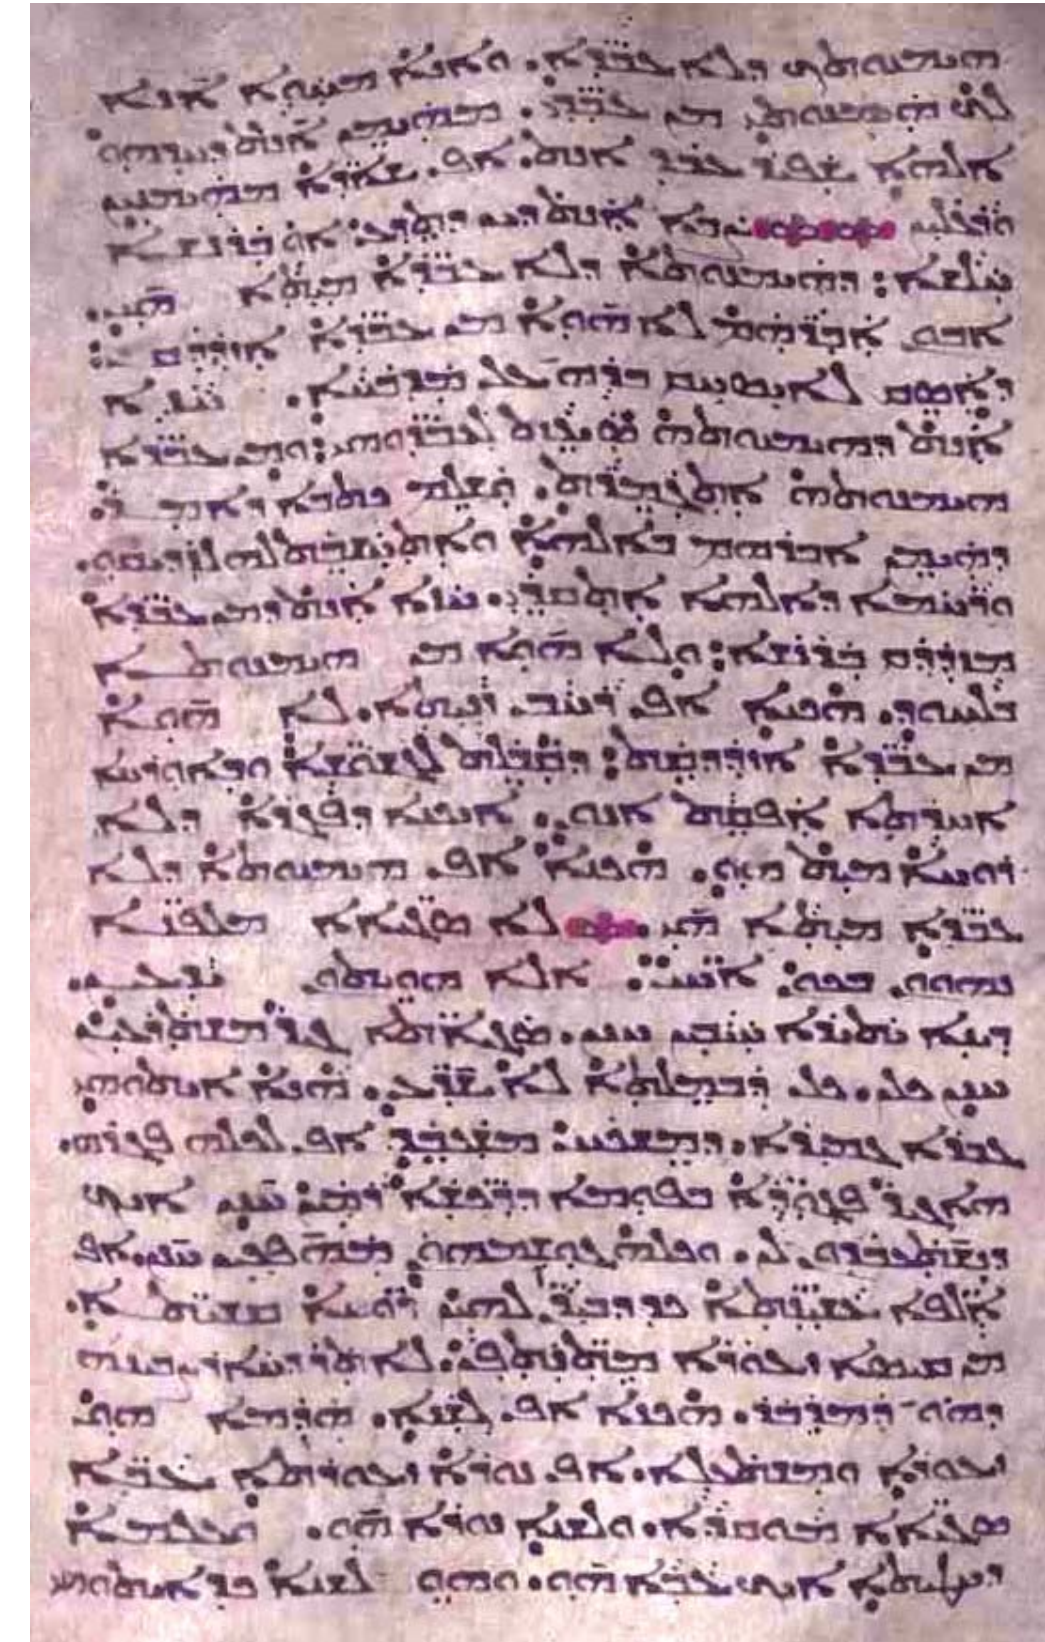 ܗܝܡܢܘܬܟ ܕܠܐ ܥܒ̈ܕܐ. ܘܐܢܐ ܡܚܘܐ ܐܢܐ
ܠܟ ܗܝܡܢܘܬܝ ܡܢ ܥܒ̈ܕܝ. ܡܗܝܡܢ ܐܢܬ ܕܚܕ ܗܘ
ܐܠܗܐ ܫܦܝܪ ܥܒܕ ܐܢܬ. ܐܦ ܫܐܕ̈ܐ ܡܗܝܡܢܝܢ
ܘܪܥܠܝܢ ܨܒܐ ܐܢܬ ܕܝܢ ܕܬܕܥ ܐܘ ܒܪܢܫܐ
ܚܠܫܐ: ܕܗܝܡܢܘܬܐ ܕܠܐ ܥܒ̈ܕܐ ܡܝܬܐ ܗܝ.
ܐܒܘܢ ܐܒܪܗܡ ܠܐ ܗܘܐ ܡܢ ܥܒ̈ܕܐ ܐܙܕܕܩ:
ܕܐܣܩ ܠܐܝܣܚܩ ܒܪܗ ܥܠ ܡܕܒܚܐ. ܚܙܐ
ܐܢܬ ܕܗܝܡܢܘܬܗ ܣܝܥܬ ܠܥܒ̈ܕܘܗܝ: ܘܡܢ ܥܒ̈ܕܐ
ܗܝܡܢܘܬܗ ܐܬܓܡܪܬ. ܘܫܠܡ ܟܬܒܐ ܕܐܡܪ:
ܕܗܝܡܢ ܐܒܪܗܡ ܒܐܠܗܐ ܘܐܬܚܫܒܬ ܠܗ ܠܙܕܝܩܘ.
ܘܪܚܡܐ ܕܐܠܗܐ ܐܬܩܪܝ. ܚܙܐ ܐܢܬ ܕܡܢ ܥܒ̈ܕܐ
ܡܙܕܕܩ ܒܪܢܫܐ: ܘܠܐ ܗܘܐ ܡܢ ܗܝܡܢܘܬܐ
ܒܠܚܘܕ. ܗܟܢܐ ܐܦ ܪܚܒ ܙܢܝܬܐ. ܠܐ ܗܘܐ
ܡܢ ܥܒ̈ܕܐ ܐܙܕܕܩܬ: ܕܩܒܠܬ ܠܓܫܘ̈ܫܐ ܘܒܐܘܪܚܐ
ܐܚܪܬܐ ܐܦܩܬ ܐܢܘܢ. ܐܝܟܢܐ ܕܦܓܪܐ ܕܠܐ
ܪܘܚܐ ܡܝܬ ܗܘ. ܗܟܢܐ ܐܦ ܗܝܡܢܘܬܐ ܕܠܐ
ܥܒ̈ܕܐ ܡܝܬܐ ܗܝ. ܠܐ ܣܓܝ̈ܐܐ ܡܠܦ̈ܢܐ
ܢܗܘܘܢ ܒܟܘܢ ܐܚ̈ܝ: ܐܠܐ ܗܘܝܬܘܢ ܝܕܥܝܢ
ܕܕܝܢܐ ܝܬܝܪܐ ܚܝܒܝܢ ܚܢܢ. ܣܓܝ̈ܐܬܐ ܓܝܪ ܡܫܬܪܥܝܢ
ܚܢܢ ܟܠܢ. ܟܠ ܕܒܡܠܬܐ ܠܐ ܫܪܥ. ܗܢܐ ܐܝܬܘܗܝ
ܓܒܪܐ ܓܡܝܪܐ. ܕܡܫܟܚ ܡܫܥܒܕ ܐܦ ܠܟܠܗ ܦܓܪܗ.
ܗܐ ܓܝܪ ܦܓܘ̈ܕܐ ܒܦܘܡܐ ܕܪ̈ܟܫܐ ܪܡܝܢ ܚܢܢ ܐܝܟ
ܕܢܫܬܥܒܕܘܢ ܠܢ. ܘܟܠܗ ܓܘܫܡܗܘܢ ܡܗܦܟܝܢ ܚܢܢ. ܐܦ
ܐܠܦ̈ܐ ܥܫܝ̈ܢܬܐ ܟܕ ܕܒܝܪ̈ܢ ܠܗܝܢ ܪ̈ܘܚܐ ܩܫܝ̈ܬܐ.
ܡܢ ܩܝܣܐ ܙܥܘܪܐ ܡܬܢܬܦ̈ܢ: ܠܐܬܪ ܕܚܐܪ ܨܒܝܢܗ
ܕܗܘ ܕܡܕܒܪ. ܗܟܢܐ ܐܦ ܠܫܢܐ. ܗܕܡܐ ܗܘ
ܙܥܘܪܐ ܘܡܫܬܥܠܐ. ܐܦ ܢܘܪܐ ܙܥܘܪܬܐ ܥܒ̈ܐ
ܣܓܝ̈ܐܐ ܡܘܩܕܐ. ܘܠܫܢܐ ܢܘܪܐ ܗܘ. ܘܥܠܡܐ
ܕܚܛܝܬܐ ܐܝܟ ܥܒܐ ܗܘ. ܘܗܘ ܠܫܢܐ ܟܕ ܐܝܬܘܗܝ